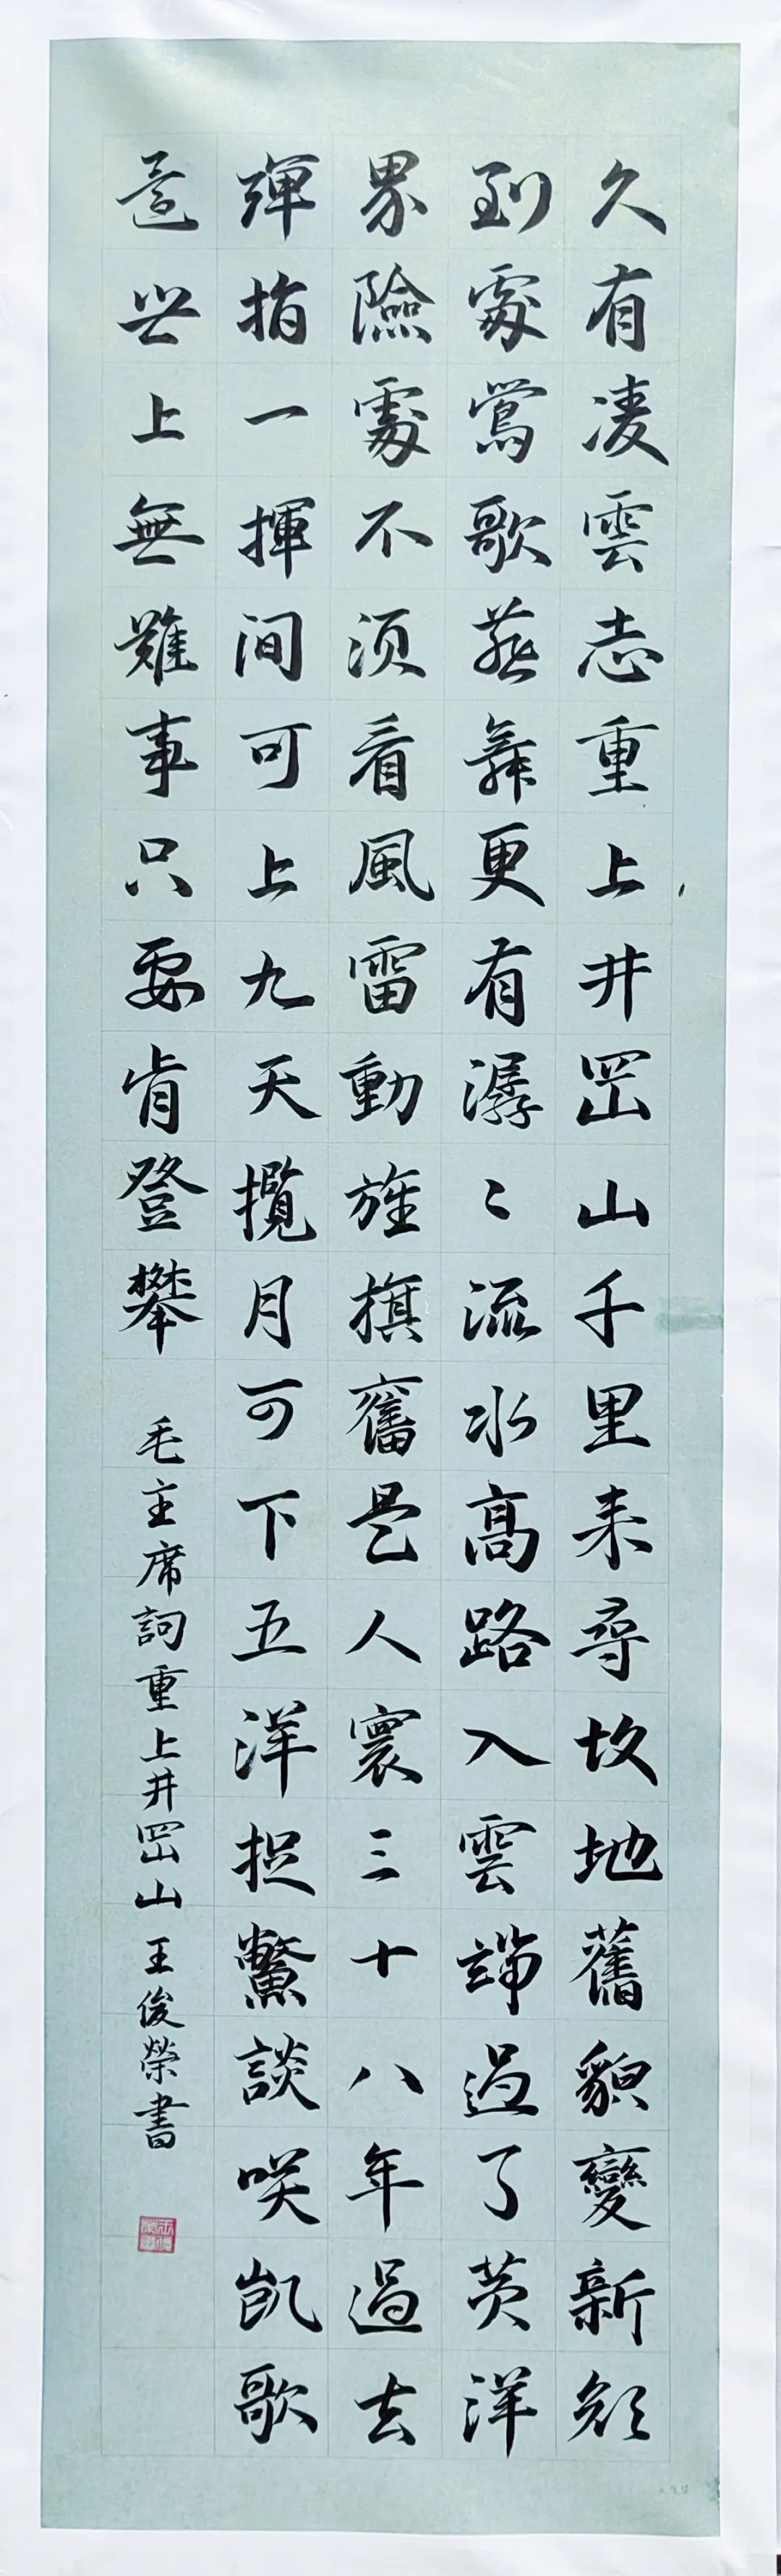 久有凌雲志重上井罡山千里来尋故地舊貌變新顔
到處鶯歌燕舞更有潺〻流水高路入雲端過了黄洋
界險處不須看風雷動旌旗奮是人寰三十八年過去
彈指一揮间可上九天攬月可下五洋捉鱉談咲凱歌
還世上無難事只要肯登攀
毛主席詞重上井罡山 王俊榮書